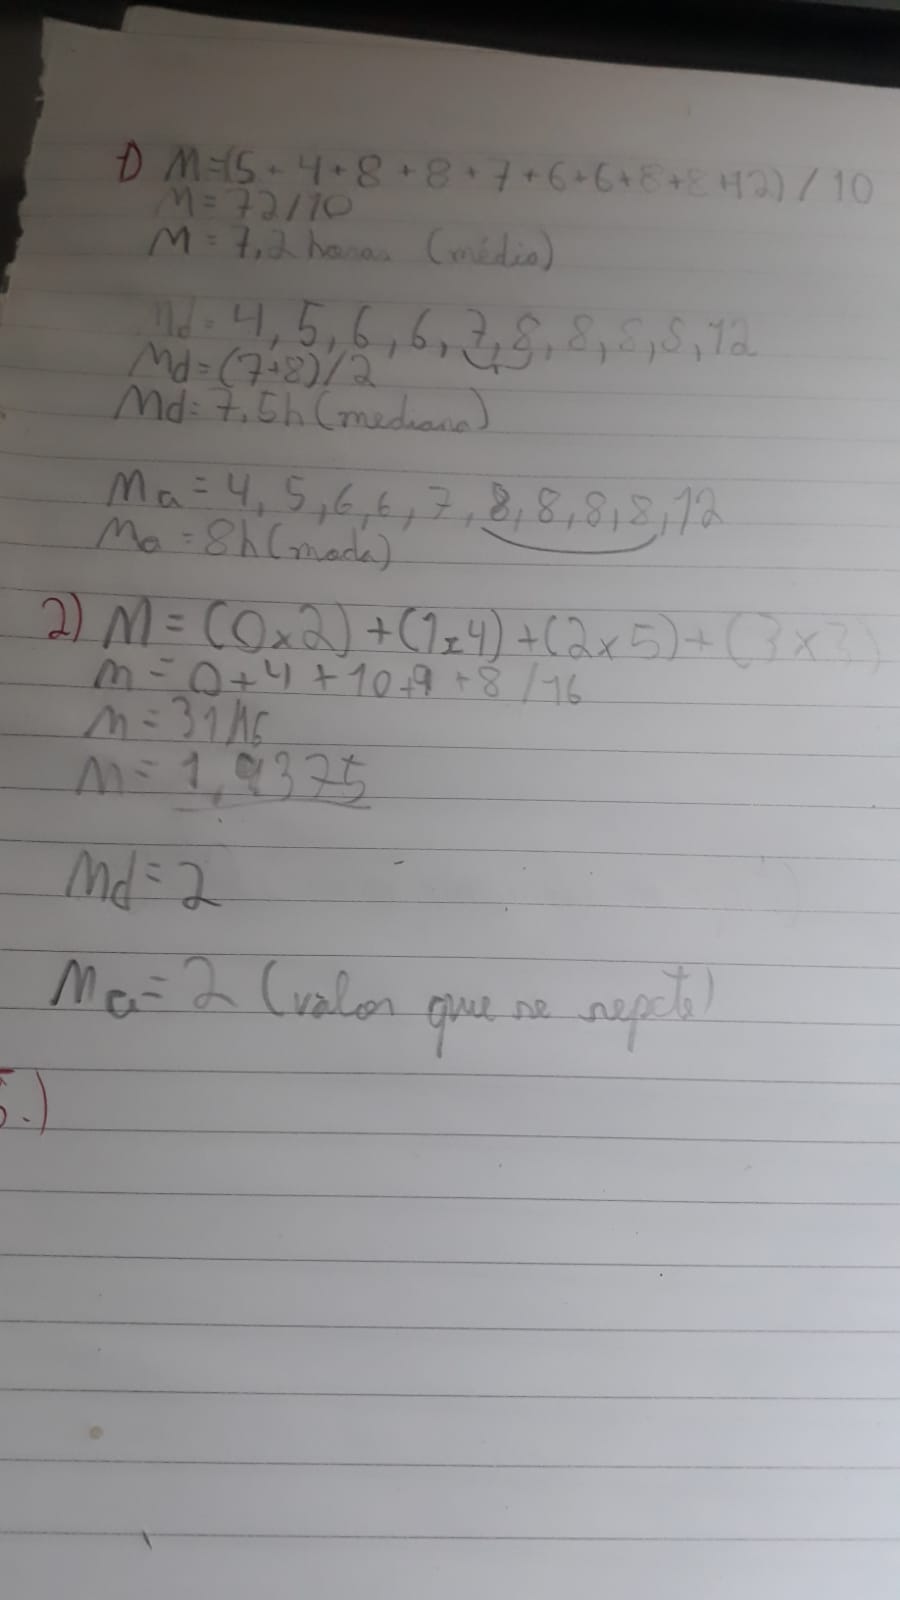 1) M=(5+4+8+8+7+6+6+8+8+12)/10
M=72/10
M=7,2 horas (média)
Md=4,5,6,6,7,8,8,8,8,12
Md=(7+8)/2
Md=7,5h (mediana)
Ma=4,5,6,6,7,8,8,8,8,12
Mo=8h (moda)
2) M=(0x2)+(1x4)+(2x5)+(3x3)
M=0+4+10+9+8/16
M=31/16
M=1,9375
Md=2
Ma=2 (valor que se repete)
5.)